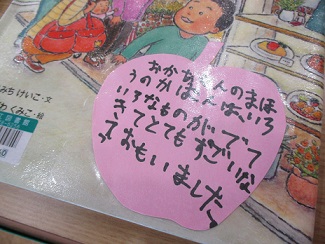 みち けいこ・文
わ くみこ・絵
図書館
おかちゃんのまほ
うのかばんは、いろ
いろなものが、でて
きてとてもすごいな
っておもいました。